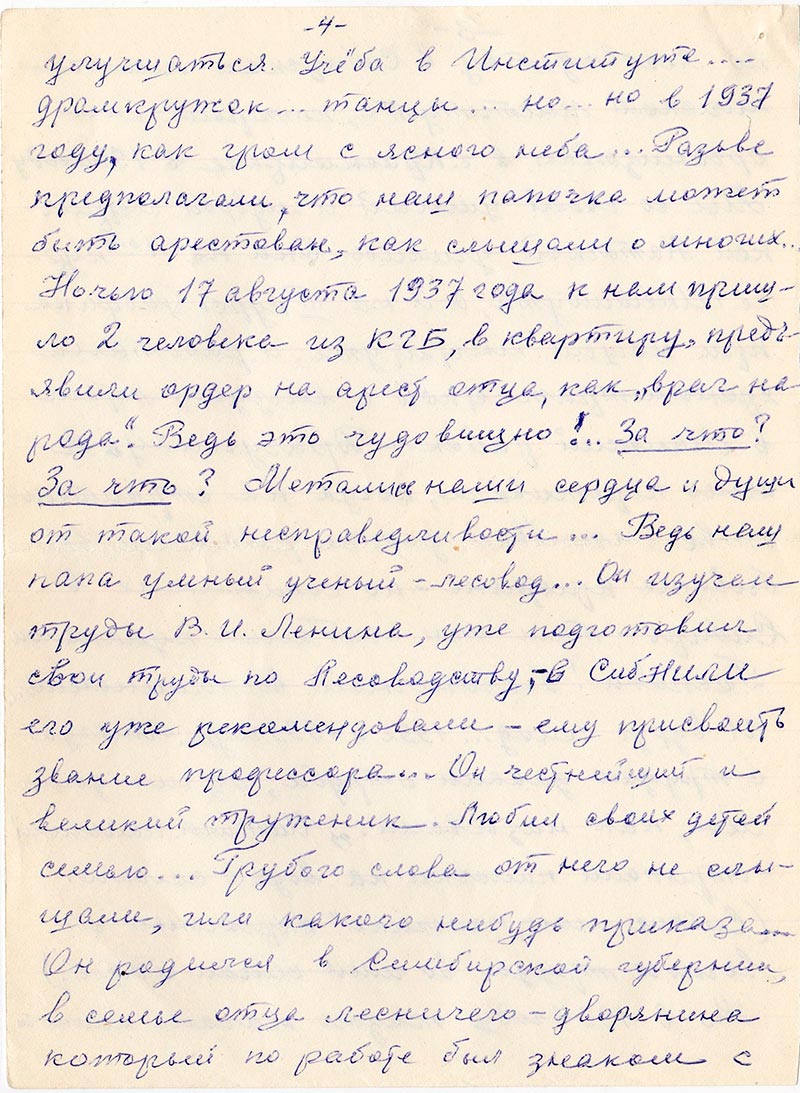 -4-
улучшаться. Учёба в Институте....
драмкружок... танцы... но... но в 1937
году, как гром с ясного неба... Разьве
предполагали, что наш папочка может
быть арестован, как слышали о многих...
Ночью 17 августа 1937 года к нам приш-
ло 2 человека из КГБ, в квартиру, предъ-
явили ордер на арест отца, как „враг на-
рода“. Ведь это чудовищно!.. За что?
За что? Метались наши сердца и души
от такой несправедливости... Ведь наш
папа умный ученый - лесовод... Он изучал
труды В. И. Ленина, уже подготовил
свои труды по Лесоводству, - в СибНИЛИ
его уже рекомендовали - ему присвоить
звание профессора... Он честнейший и
великий труженик. Любил своих детей
семью... Грубого слова от него не слы-
шали, или какого нибудь приказа...
Он родился в Симбирской губернии,
в семье отца лесничего - дворянина
который по работе был знаком с